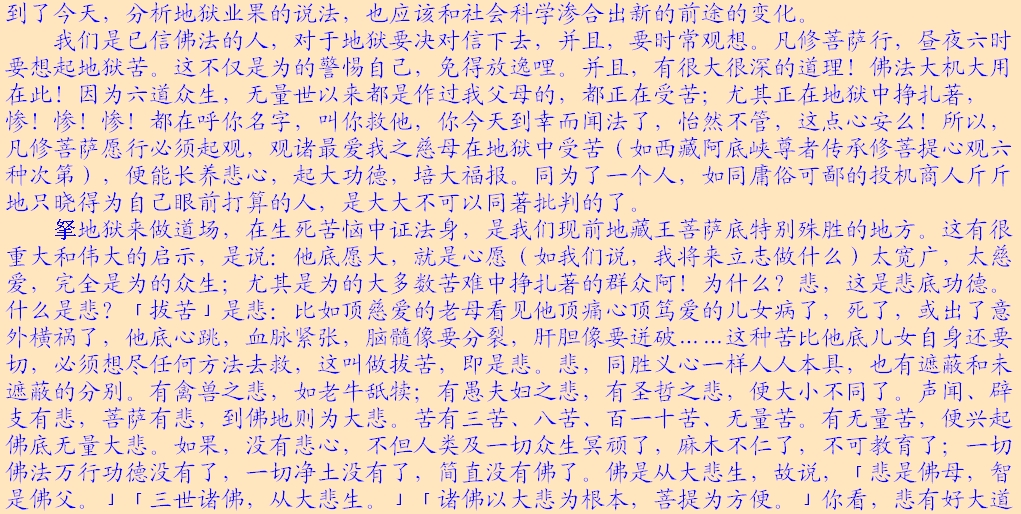 到了今天，分析地狱业果的说法，也应该和社会科学渗合出新的前途的变化。
我们是已信佛法的人，对于地狱要决对信下去，并且，要时常观想。凡修菩萨行，昼夜六时
要想起地狱苦。这不仅是为的警惕自己，免得放逸哩。并且，有很大很深的道理！佛法大机大用
在此！因为六道众生，无量世以来都是作过我父母的，都正在受苦；尤其正在地狱中挣扎著，
惨！惨！惨！都在呼你名字，叫你救他，你今天到幸而闻法了，怡然不管，这点心安么！所以，
凡修菩萨愿行必须起观，观诸最爱我之慈母在地狱中受苦（如西藏阿底峡尊者传承修菩提心观六
种次第），便能长养悲心，起大功德，培大福报。同为了一个人，如同庸俗可鄙的投机商人斤斤
地只晓得为自己眼前打算的人，是大大不可以同著批判的了。
拏地狱来做道场，在生死苦恼中证法身，是我们现前地藏王菩萨底特别殊胜的地方。这有很
重大和伟大的启示，是说：他底愿大，就是心愿（如我们说，我将来立志做什么）太宽广，太慈
爱，完全是为的众生；尤其是为的大多数苦难中挣扎著的群众阿！为什么？悲，这是悲底功德。
什么是悲？「拔苦」是悲：比如顶慈爱的老母看见他顶痛心顶笃爱的儿女病了，死了，或出了意
外横祸了，他底心跳，血脉紧张，脑髓像要分裂，肝胆像要迸破……这种苦比他底儿女自身还要
切，必须想尽任何方法去救，这叫做拔苦，即是悲。悲，同胜义心一样人人本具，也有遮蔽和未
遮蔽的分别。有禽兽之悲，如老牛舐犊；有愚夫妇之悲，有圣哲之悲，便大小不同了。声闻、辟
支有悲，菩萨有悲，到佛地则为大悲。苦有三苦、八苦、百一十苦、无量苦。有无量苦，便兴起
佛底无量大悲。如果，没有悲心，不但人类及一切众生冥顽了，麻木不仁了，不可教育了；一切
佛法万行功德没有了，一切净土没有了，简直没有佛了。佛是从大悲生，故说，「悲是佛母，智
是佛父。」「三世诸佛，从大悲生。」「诸佛以大悲为根本，菩提为方便。」你看，悲有好大道